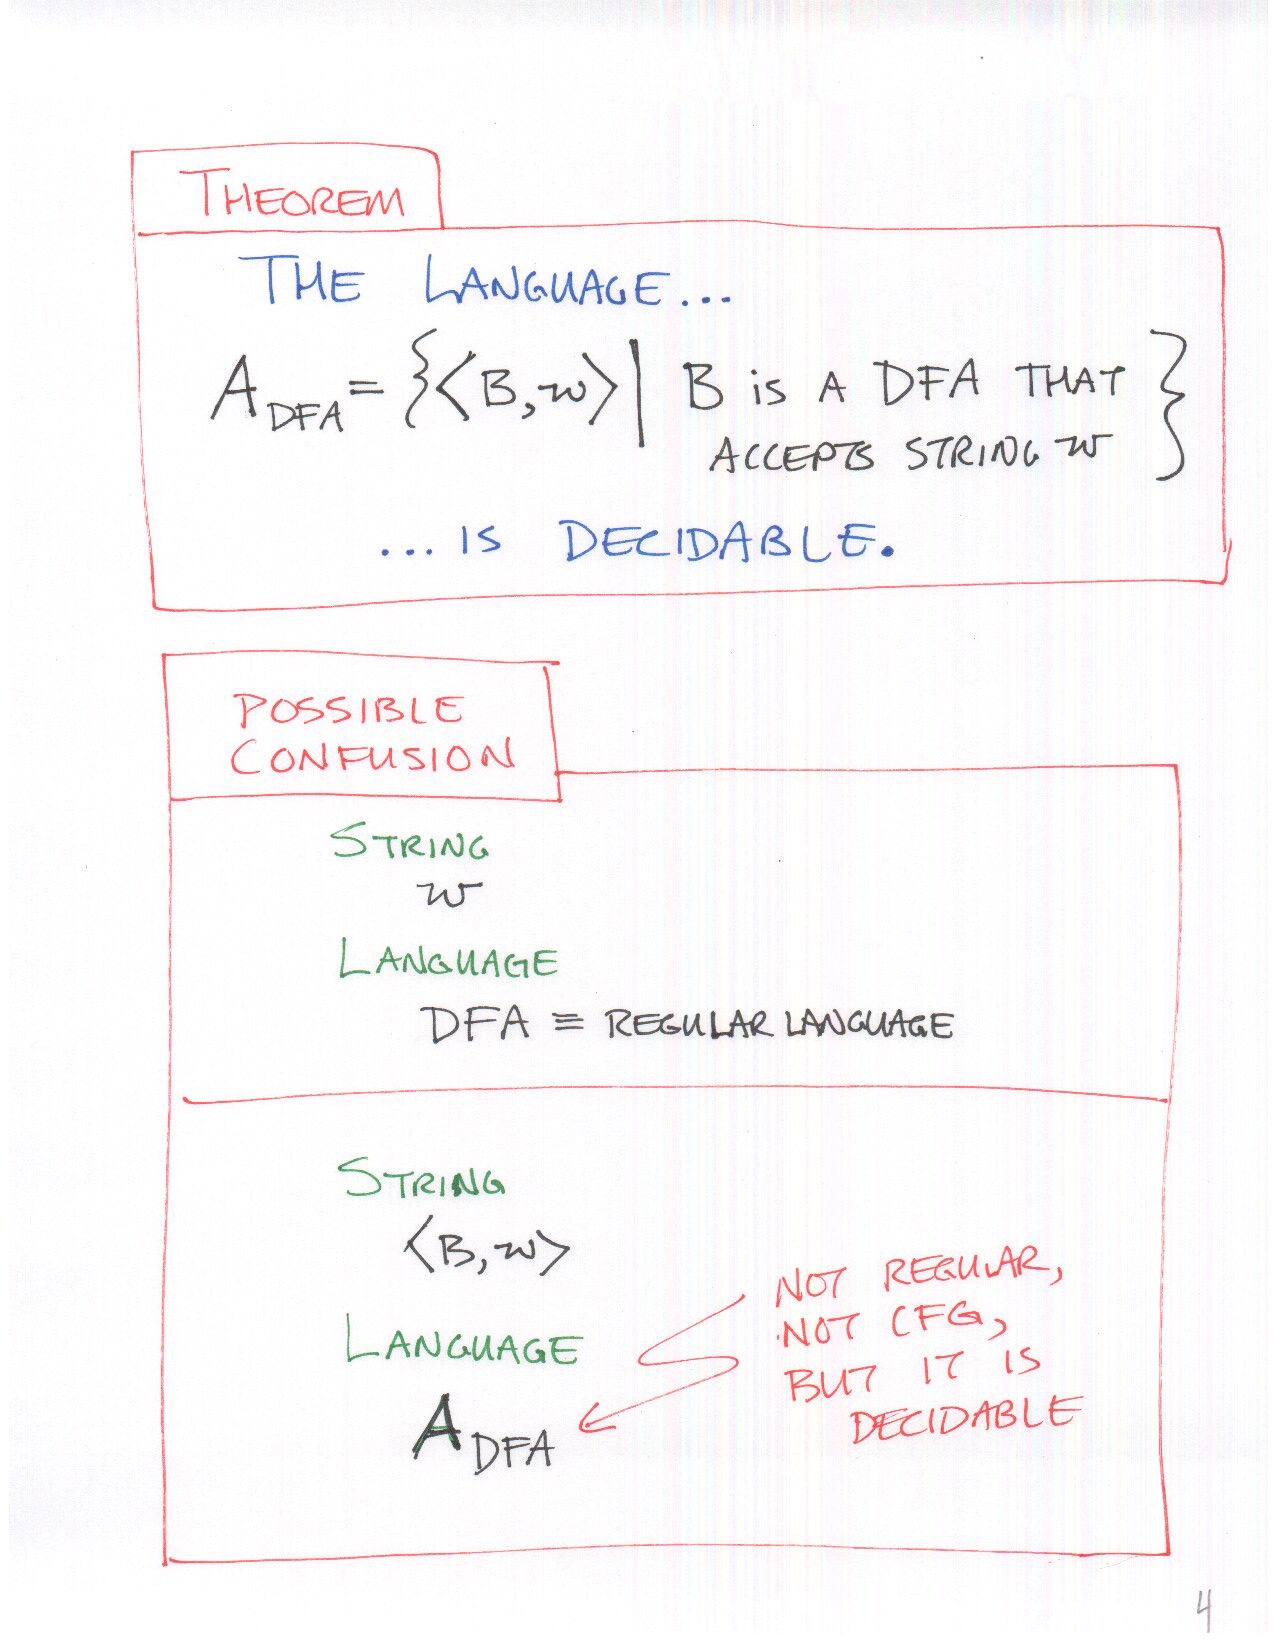 THEOREM
THE LANGUAGE...
A_DFA = {⟨B,w⟩ | B IS A DFA THAT
ACCEPTS STRING w }
...IS DECIDABLE.
POSSIBLE
CONFUSION
STRING
w
LANGUAGE
DFA ≡ REGULAR LANGUAGE
STRING
⟨B,w⟩
LANGUAGE
A_DFA
NOT REGULAR,
NOT CFG,
BUT IT IS
DECIDABLE
4